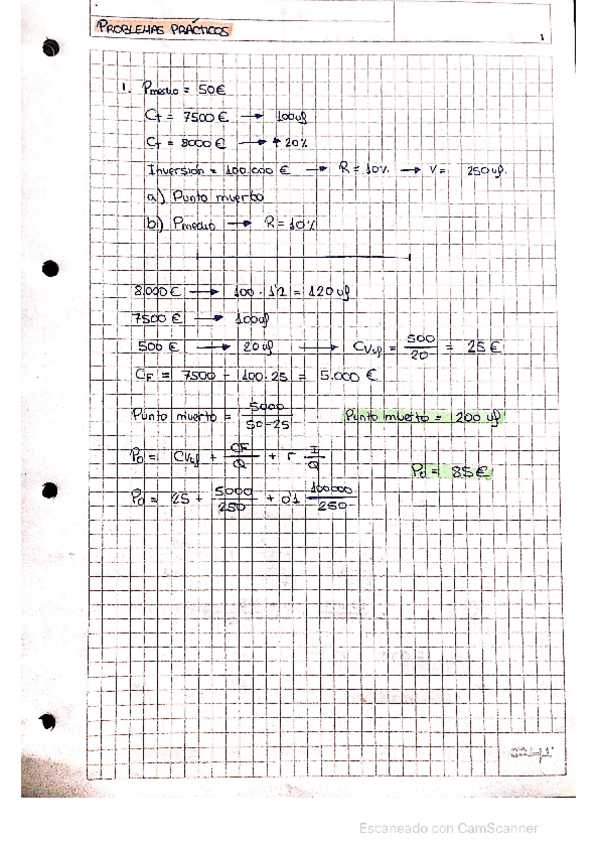 PROBLEMAS PRÁCTICOS
1
1. Pmedio = 50€
CT = 7500 € → 100 uf
CT = 8000 € → +20%
Inversión = 100.000 € → R = 10% → V = 250 uf.
a) Punto muerto
b) Pmedio → R = 10%
8.000 € → 100 · 1'2 = 120 uf
7500 € → 100 uf
500 € → 20 uf → CVuf = 500/20 = 25 €
CF = 7500 - 100·25 = 5.000 €
Punto muerto = 5000/50-25 Punto muerto = 200 uf
P0 = CVuf + CF/Q + r I/Q
P0 = 85 €
P0 = 25 + 5000/250 + 0'1 100000/250
Escaneado con CamScanner